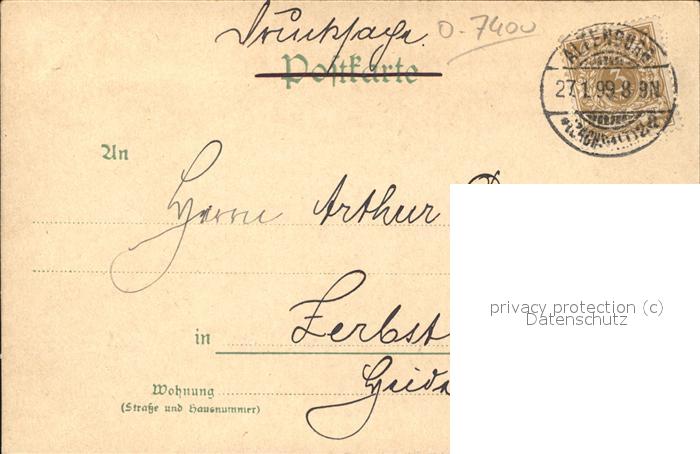 Drucksache.
0-7400
Postkarte
ALTENBURG
27.1.99.8-9N
3
An
Herrn Arthur
in Zerbst
Wohnung
(Straße und Hausnummer)
privacy protection (c)
Datenschutz